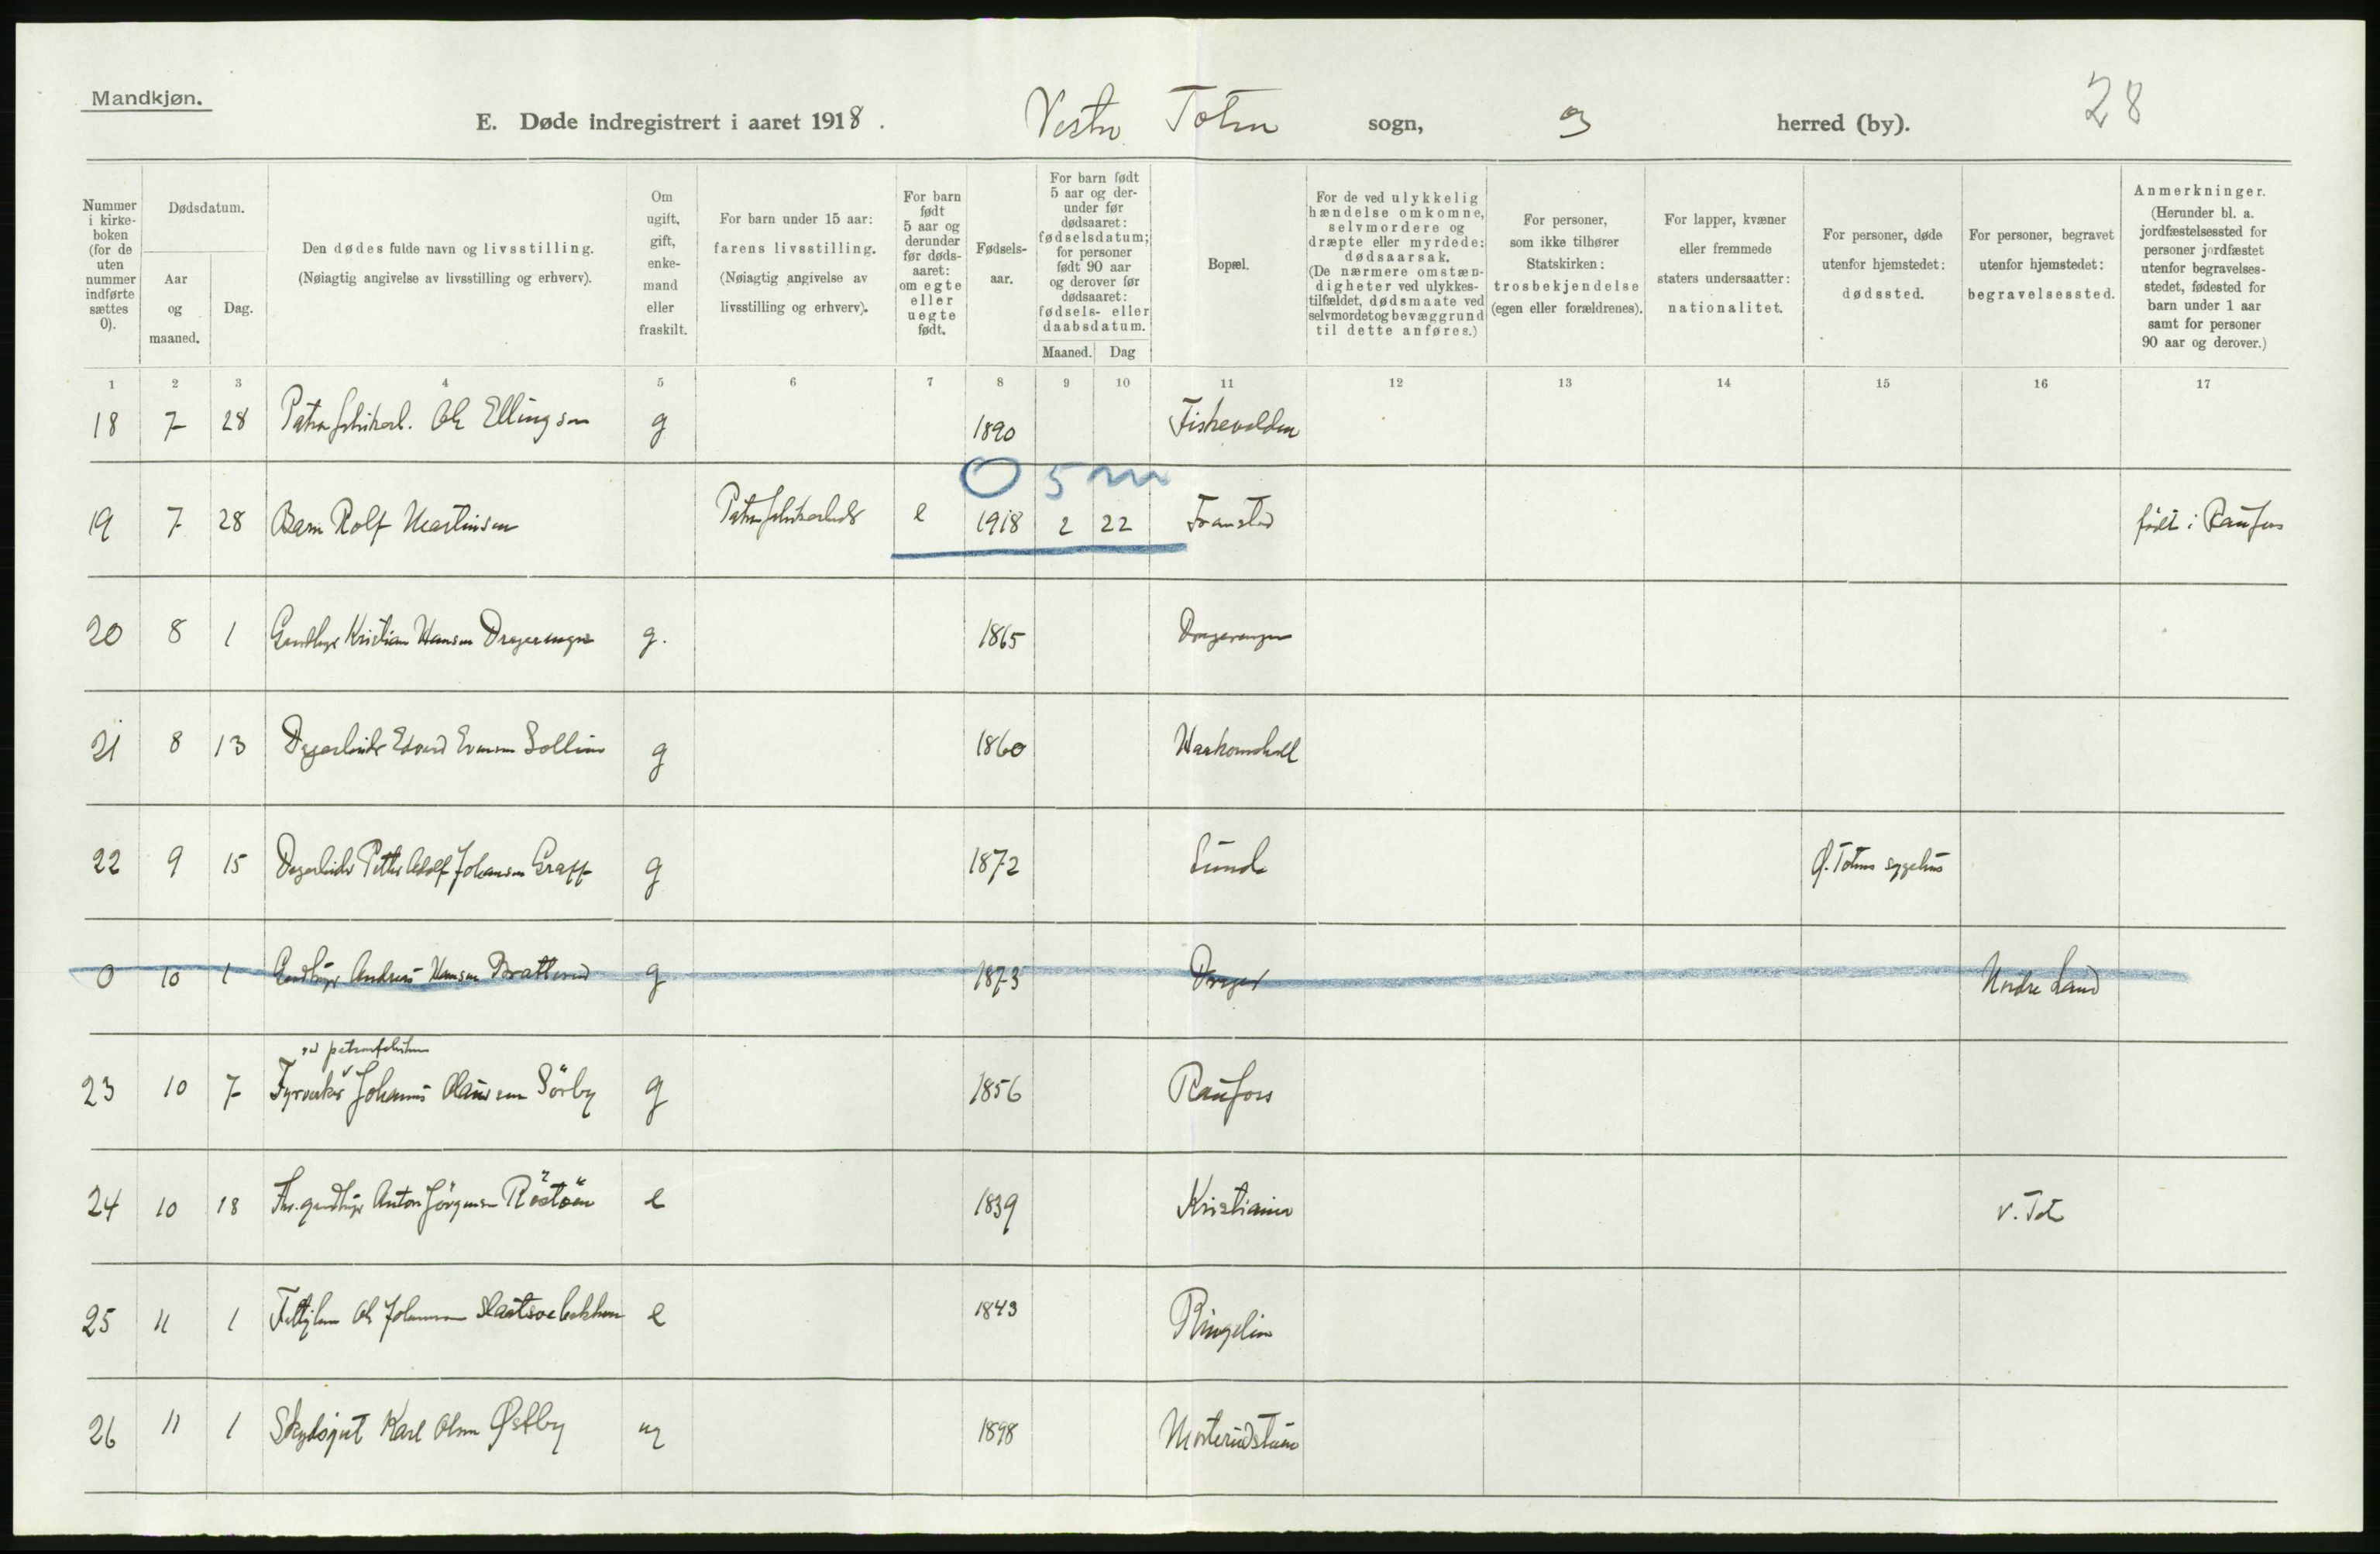 Mandkjøn.
E. Døde indregistrert i aaret 1918. Vestre Toten sogn, herred (by). 28
Nummer i kirke-boken (for de uten nummer indførte sættes 0).
Dødsdatum.
Aar og maaned.
Dag.
Den dødes fulde navn og livsstilling.
(Nøiagtig angivelse av livsstilling og erhverv).
Om ugift, gift, enke-mand eller fraskilt.
For barn under 15 aar: farens livsstilling.
(Nøiagtig angivelse av livsstilling og erhverv).
For barn født 5 aar og derunder før døds-aaret: om egte eller uegte født.
Fødsels-aar.
For barn født 5 aar og der-under før dødsaaret: fødselsdatum; for personer født 90 aar og derover før dødsaaret: fødsels- eller daabsdatum.
Maaned. Dag
Bopæl.
For de ved ulykkelig hændelse omkomne, selvmordere og dræpte eller myrdede: dødsaarsak.
(De nærmere omstæn-digheter ved ulykkes-tilfældet, dødsmaate ved selvmordet og bevæggrund til dette anføres.)
For personer, som ikke tilhører Statskirken: trosbekjendelse (egen eller forældrenes).
For lapper, kvæner eller fremmede staters undersaatter: nationalitet.
For personer, døde utenfor hjemstedet: dødssted.
For personer, begravet utenfor hjemstedet: begravelsessted.
Anmerkninger.
(Herunder bl. a. jordfæstelsessted for personer jordfæstet utenfor begravelses-stedet, fødested for barn under 1 aar samt for personer 90 aar og derover.)
1 2 3 4 5 6 7 8 9 10 11 12 13 14 15 16 17
18 7 28 Ole Ellingsen g 1890 Fiskevolden
0 5 m
19 7 28 Barn Rolf Martinsen e 1918 2 22 født i Raufoss
20 8 1 Gaardbr Kristian Hansen g. 1865
21 8 13 Edvard g 1860
22 9 15 Petter Adolf Johansen Graff g 1872 Lund Ø. Totens sygehus
0 10 1 Gaardbruger Andreas Hansen g 1873 Nordre Land
ved patronfabriken
23 10 7 Fyrverker Johannes Olaussen Sörby g 1856 Raufoss
24 10 18 Anton Jörgensen e 1839 Kristiania V. Toten
25 11 1 Ole Johannesen e 1843 Ringelien
26 11 1 Skydsgut Karl Olsen Østby ug 1898